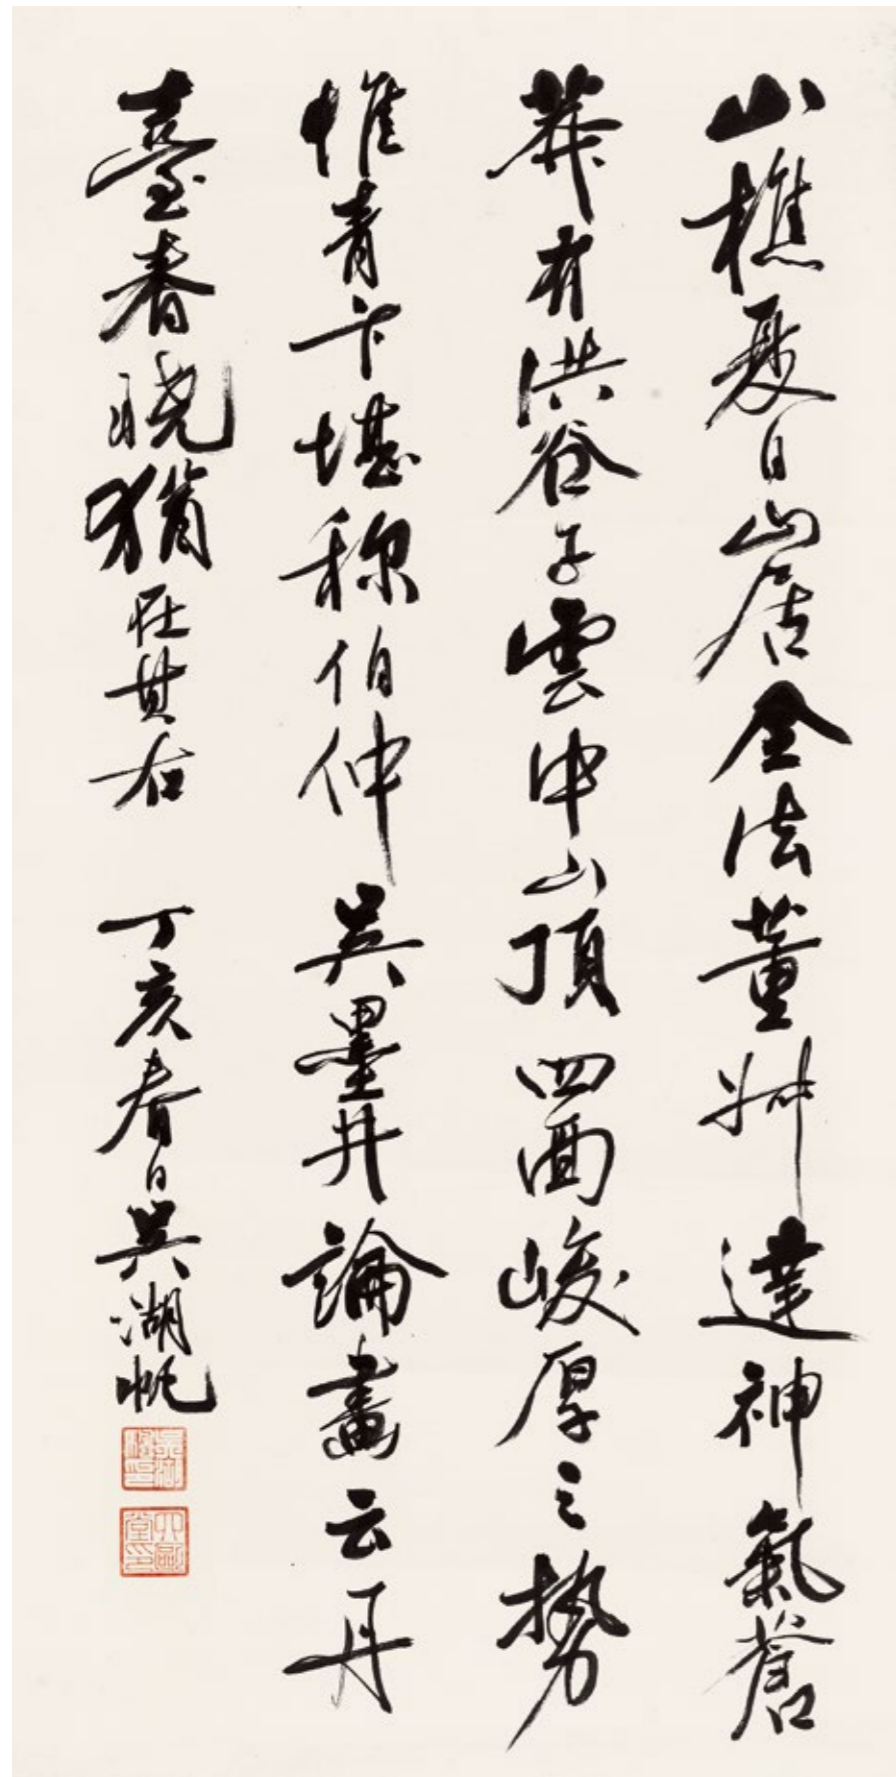 山樵夏日山居全法董叔達神氣蒼
莽有洪谷子雲中山頂四面峻厚之勢
惟青卞堪称伯仲吳墨井論畫云丹
臺春曉猶在其右 丁亥春日吳湖帆